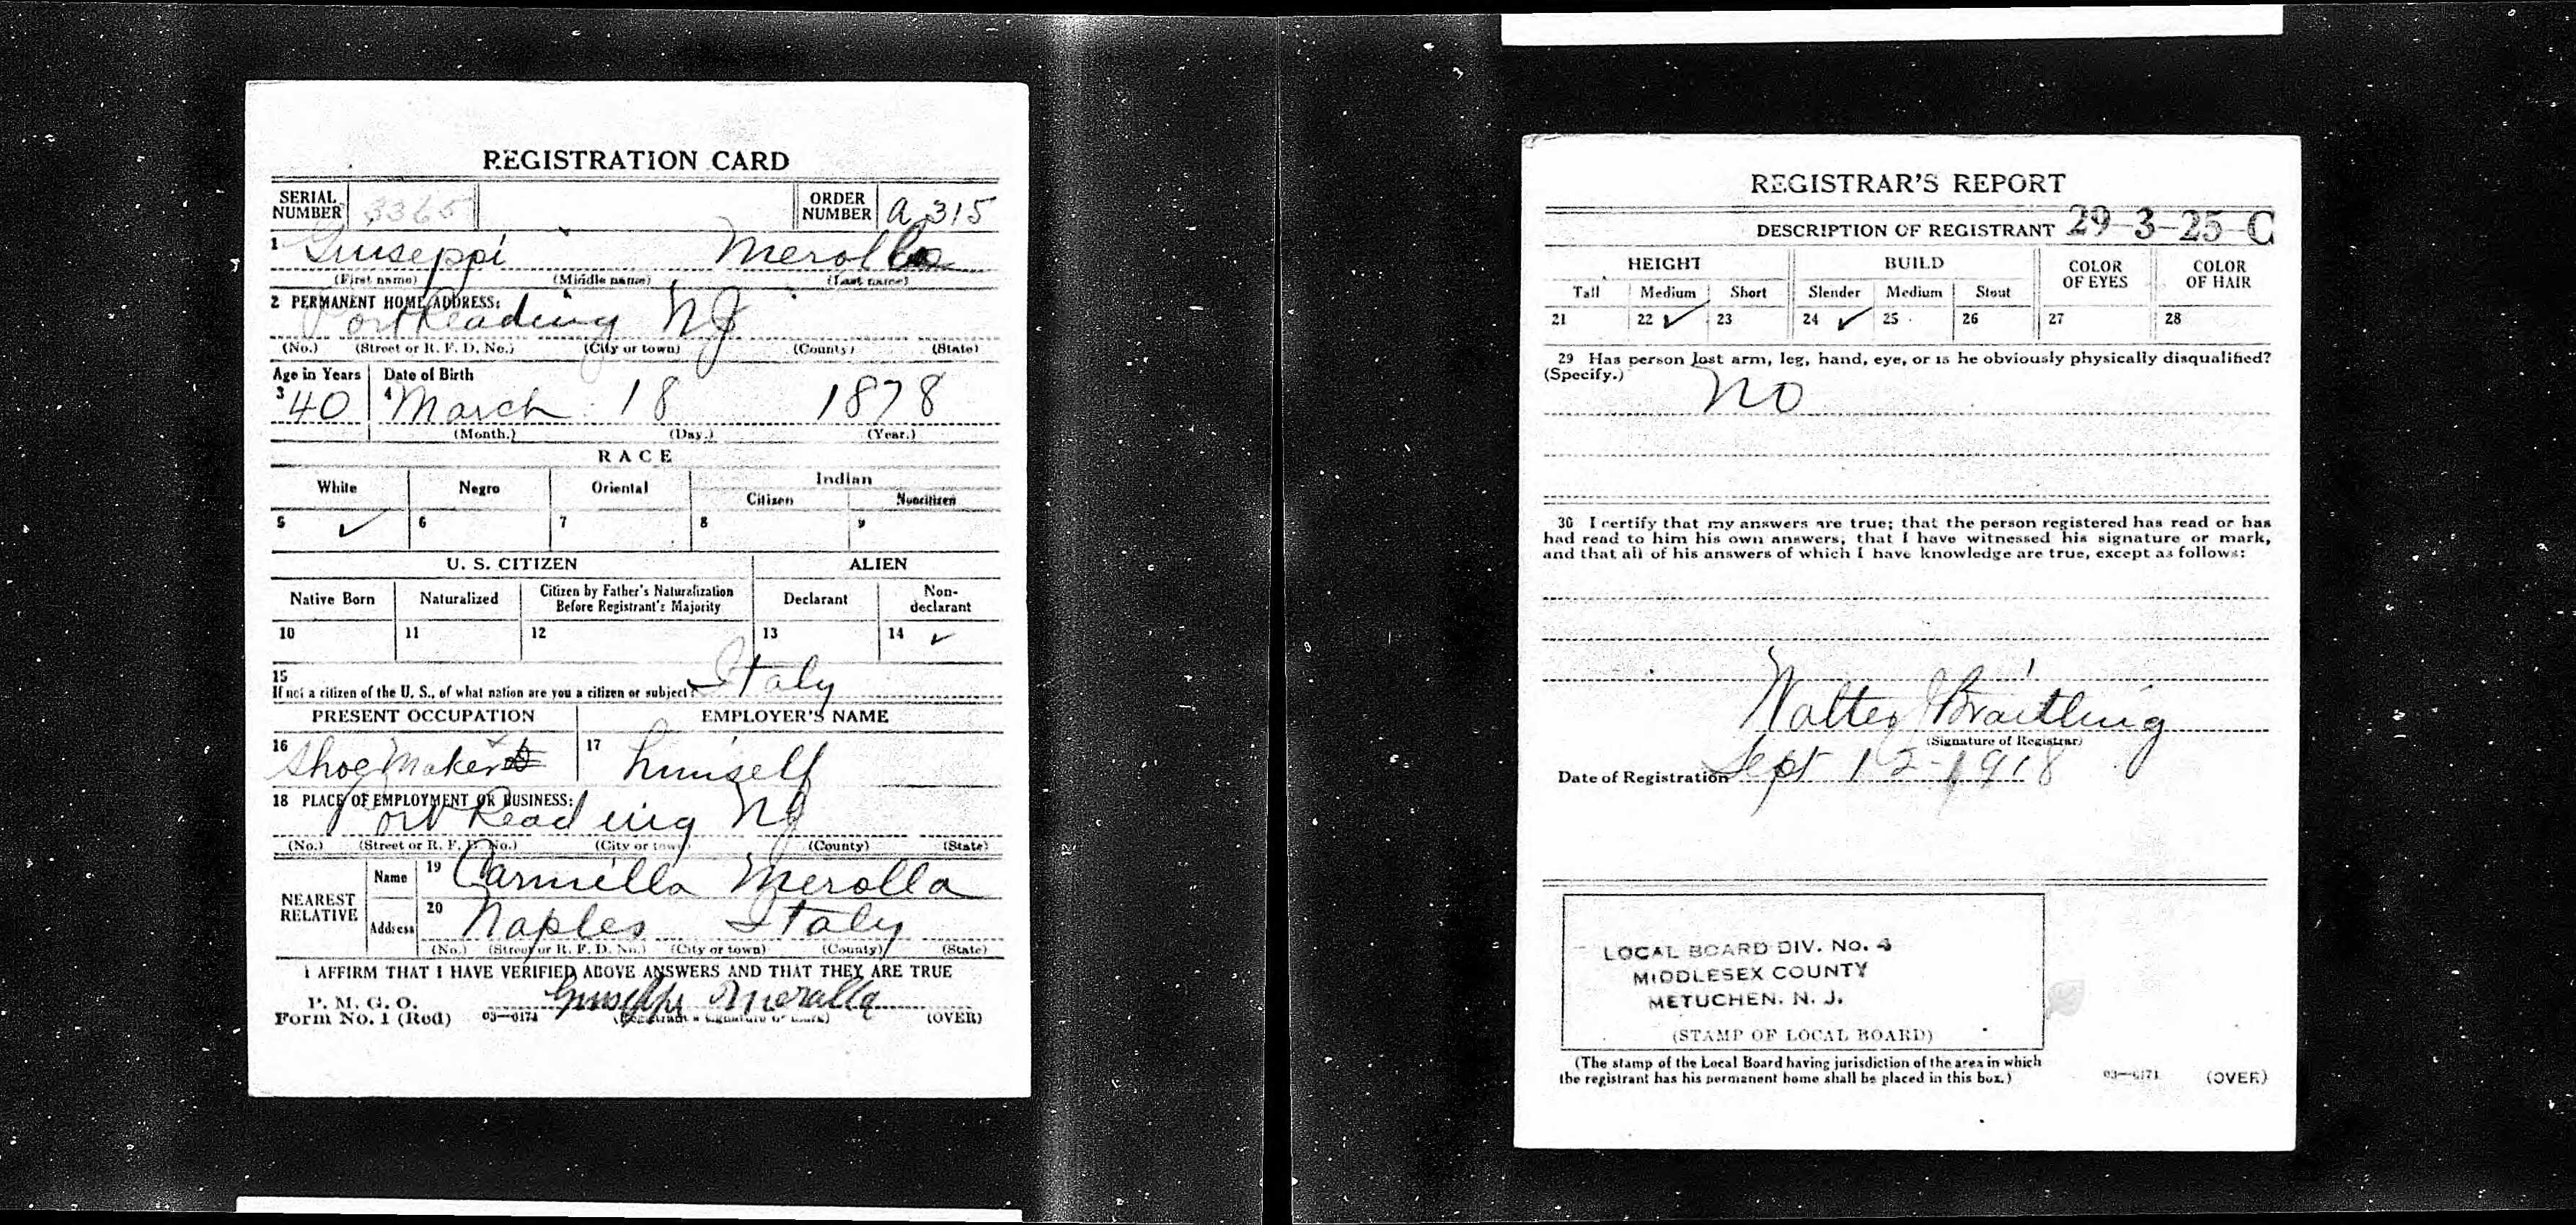 REGISTRATION CARD
SERIAL NUMBER 3365 ORDER NUMBER A 315
1 Giuseppi Merolla
(First name) (Middle name) (Last name)
2 PERMANENT HOME ADDRESS:
Port Reading NJ
(No.) (Street or R. F. D. No.) (City or town) (County) (State)
Age in Years Date of Birth
3 40 4 March 18 1878
(Month.) (Day.) (Year.)
RACE
White Negro Oriental Indian
Citizen Noncitizen
5 ✓ 6 7 8 9
U. S. CITIZEN ALIEN
Native Born Naturalized Citizen by Father's Naturalization Before Registrant's Majority Declarant Non-declarant
10 11 12 13 14 ✓
15
If not a citizen of the U. S., of what nation are you a citizen or subject? Italy
PRESENT OCCUPATION EMPLOYER'S NAME
16 Shoe Maker 17 himself
18 PLACE OF EMPLOYMENT OR BUSINESS:
Port Reading NJ
(No.) (Street or R. F. D. No.) (City or town) (County) (State)
NEAREST RELATIVE
Name 19 Carmilla Merolla
Address 20 Naples Italy
(No.) (Street or R. F. D. No.) (City or town) (County) (State)
I AFFIRM THAT I HAVE VERIFIED ABOVE ANSWERS AND THAT THEY ARE TRUE
P. M. G. O.
Form No. 1 (Red) 03—6171 Giuseppe Merolla
(Registrant's signature or mark) (OVER)
REGISTRAR'S REPORT
DESCRIPTION OF REGISTRANT 29-3-25-C
HEIGHT BUILD COLOR OF EYES COLOR OF HAIR
Tall Medium Short Slender Medium Stout
21 22 ✓ 23 24 ✓ 25 26 27 28
29 Has person lost arm, leg, hand, eye, or is he obviously physically disqualified?
(Specify.)
No
30 I certify that my answers are true; that the person registered has read or has
had read to him his own answers; that I have witnessed his signature or mark,
and that all of his answers of which I have knowledge are true, except as follows:
Walter Braitling
(Signature of Registrar)
Date of Registration Sept 12-1918
LOCAL BOARD DIV. No. 4
MIDDLESEX COUNTY
METUCHEN. N. J.
(STAMP OF LOCAL BOARD)
(The stamp of the Local Board having jurisdiction of the area in which
the registrant has his permanent home shall be placed in this box.)
03—6171 (OVER)